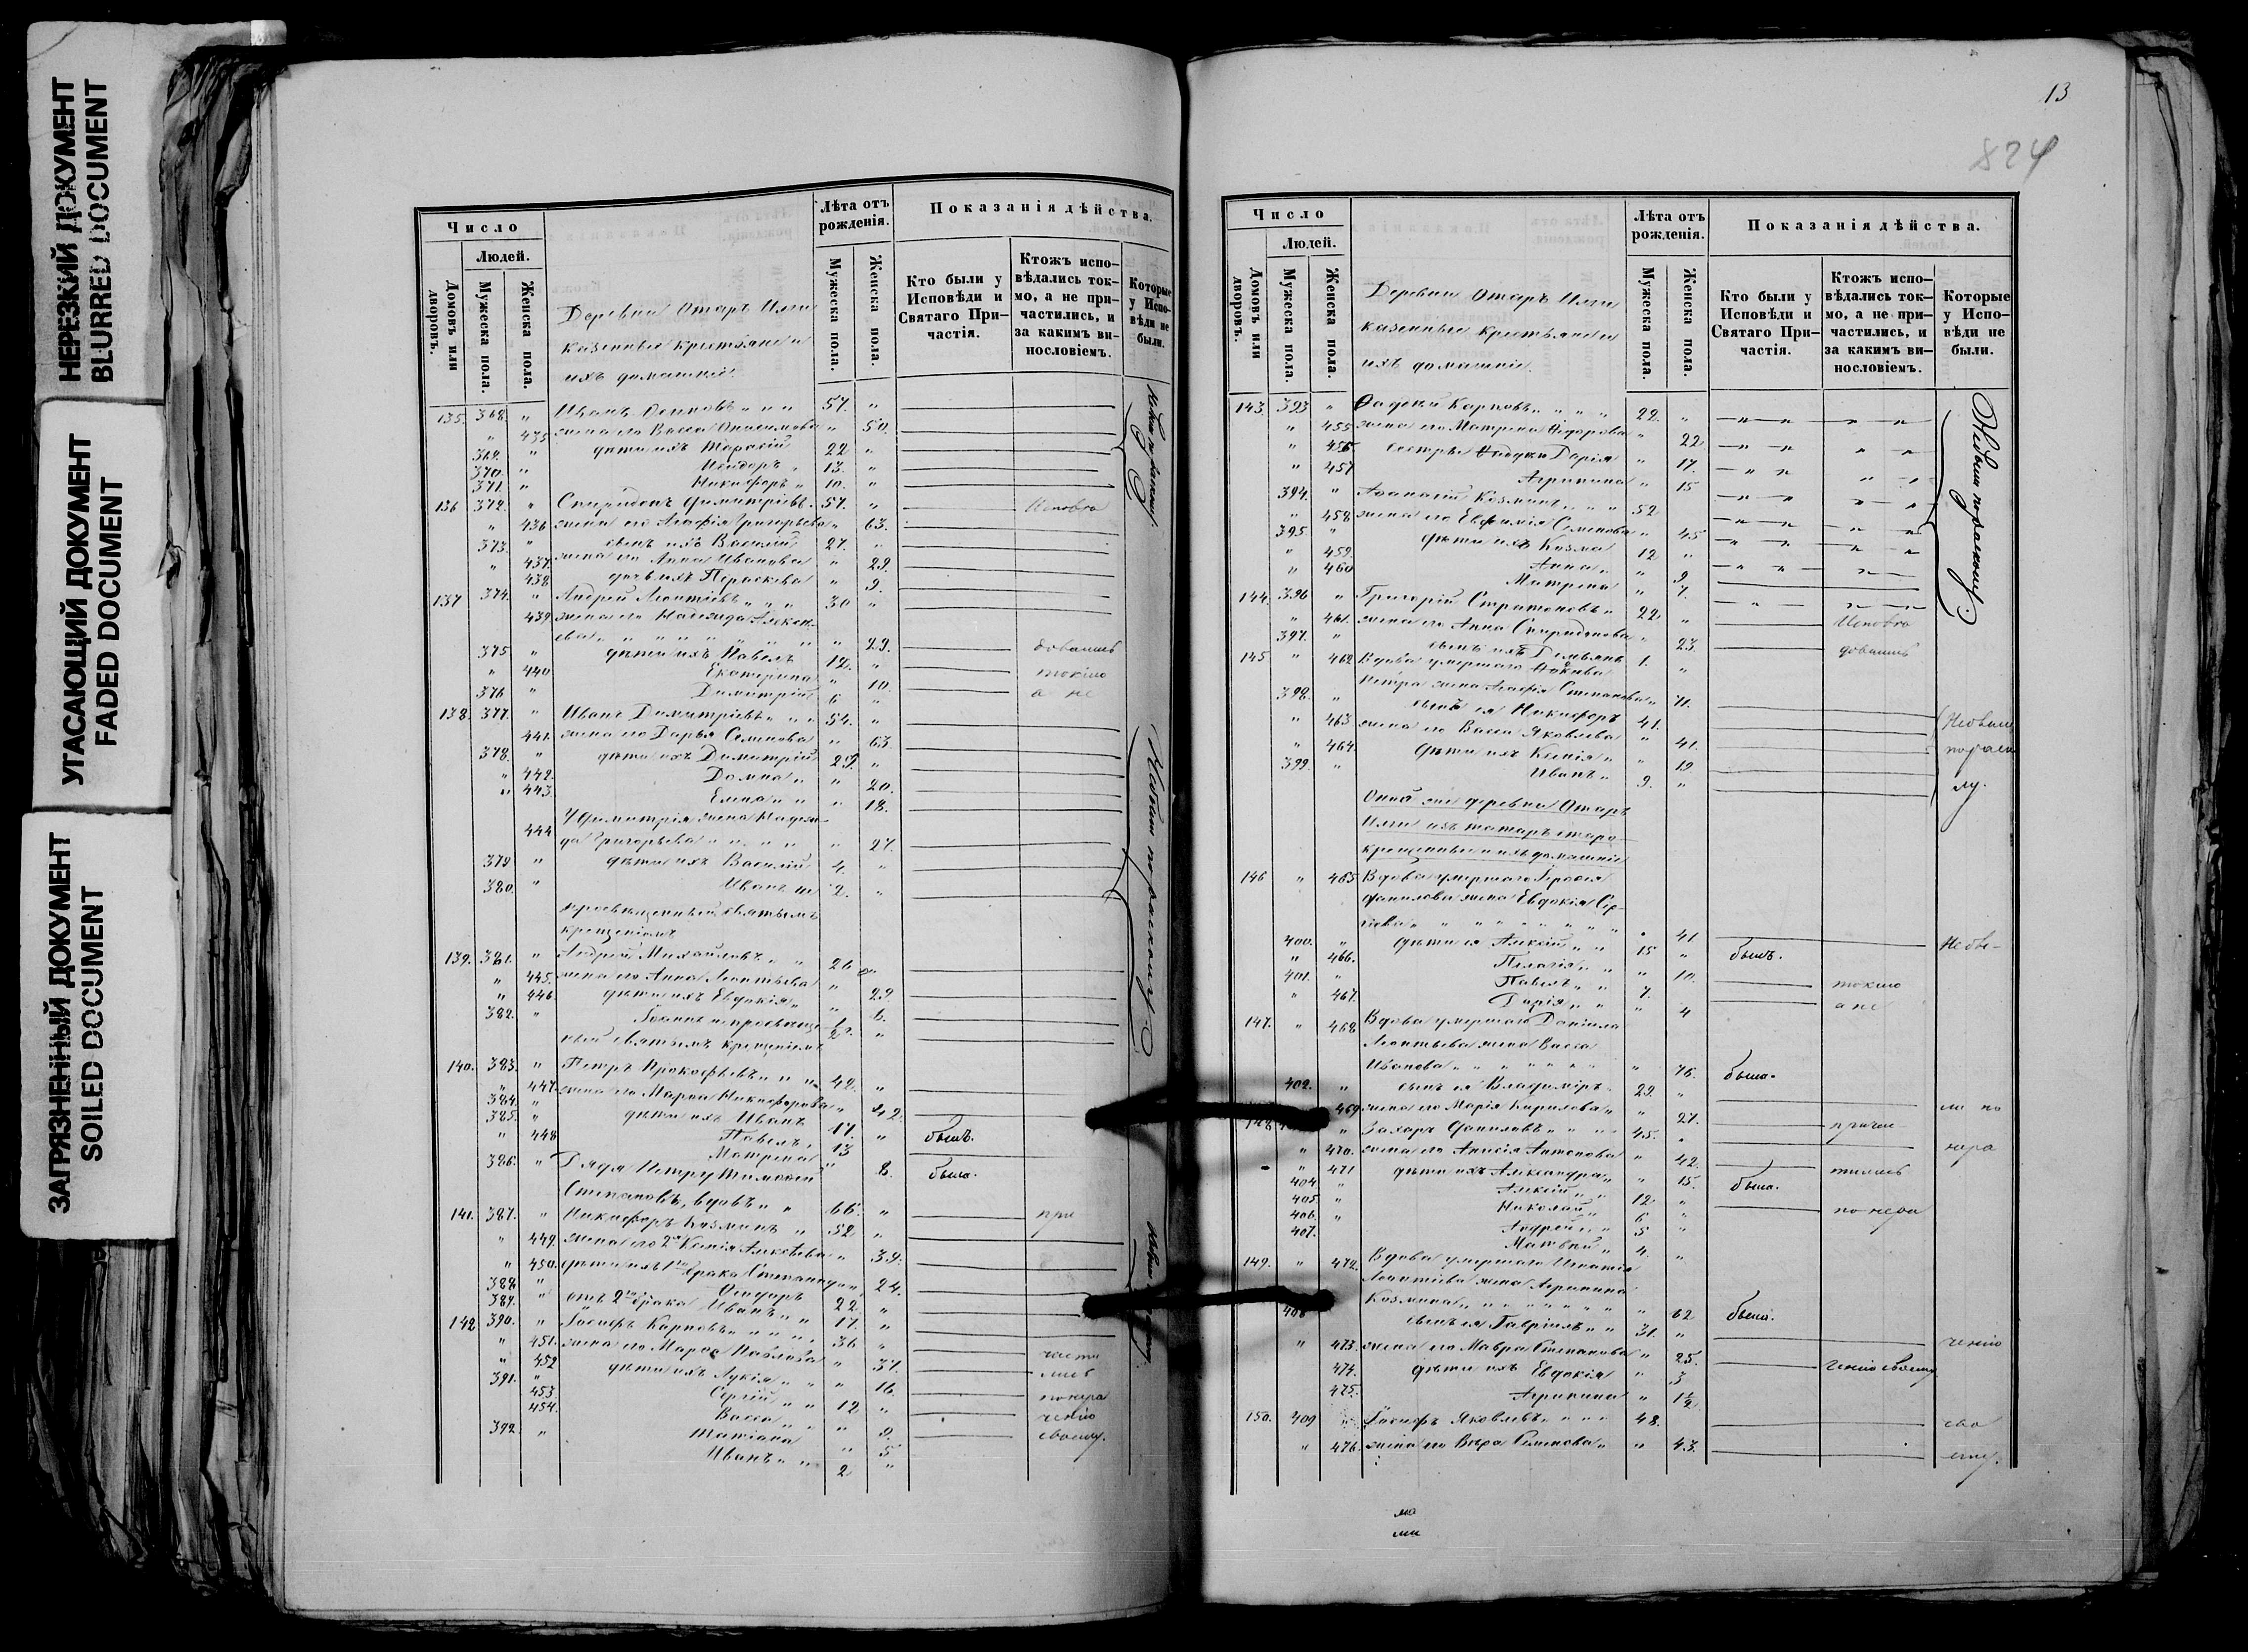 НЕРЕЗКИЙ ДОКУМЕНТ
BLURRED DOCUMENT
УГАСАЮЩИЙ ДОКУМЕНТ
FADED DOCUMENT
ЗАГРЯЗНЕННЫЙ ДОКУМЕНТ
SOILED DOCUMENT
Число
Людей.
Домовъ или дворовъ.
Мужеска пола.
Женска пола.
Деревни Отаръ Илги
казенные крестьяне и
ихъ домашніе.
Лѣта отъ рожденія.
Мужеска пола.
Женска пола.
Показанія дѣйства.
Кто были у Исповѣди и Святаго Причастія.
Ктожъ исповѣдались токмо, а не причастились, и за какимъ винословіемъ.
Которые у Исповѣди не были.
135. 368. " Иванъ Осиповъ " " " 57. "
" 435 жена его Васса Онисимова " 50.
369. " дѣти ихъ Тарасій 22 "
370. " Исидоръ " 13. "
371. " Никифоръ " 10. "
136 372. " Спиридонъ Димитріевъ. 57. " Исповѣ
" 436 жена его Агафія Григорьева " 63.
373. " сынъ ихъ Василій 27. "
" 437. жена его Анна Иванова " 29.
438 дочь ихъ Параскева " 9.
137 374. " Андрей Леонтіевъ " " " 30 "
439. жена его Надежда Алексе-
ева " " " " " " 29.
375. " дѣти ихъ Павелъ 12. " довались
" 440 Екатерина " 10. токмо
376 " Димитрій 6 " а не
138. 377. " Иванъ Димитріевъ " " 54. "
441. жена его Дарья Семенова " 63.
378. " дѣти ихъ Димитрій 29. "
" 442. Домна " " 20.
" 443. Елена " " " 18.
444 У Димитрія жена Надеж-
да Григорьева " " " " " 27.
379 " дѣти ихъ Василій 4. "
380. " Иванъ не 2. "
просвѣщенный святымъ
крещеніемъ
139. 381. " Андрей Михайловъ " " 26 "
" 445. жена его Анна Леонтьева " 29.
" 446. дѣти ихъ Евдокія " " 6.
382. " Іоаннъ непросвѣще-
нный святымъ крещеніемъ
140. 383. " Петръ Прокофьевъ " " " 42. "
" 447. жена его Марѳа Никифорова " 42.
384. " дѣти ихъ Иванъ 17. " былъ.
385. " Павелъ " 13
" 448 Матрена " 8. была.
386. " Дядя Петру Тимофей
Степановъ, вдовъ " " 66. "
141. 387. " Никифоръ Козминъ " 52 " при
" 449. жена его 2я Ксенія Алексѣева " 39.
" 450. дѣти ихъ 1го брака Степанида " 24.
388. " Ѳеодоръ 22. "
389. " отъ 2го брака Иванъ " " 17. "
142 390. " Іосифъ Карповъ " " " " 36 "
" 451. жена его Марѳа Павлова " 37. части
" 452 дѣти ихъ Лукія " " " 16. лись
391. " Сергій " " 12 " понера
453. Васса " " " 9. чению
454. Татіана " 5 своему.
392. " Иванъ " " 2 "
Небыли по расколу
13
824
Число
Людей.
Домовъ или дворовъ.
Мужеска пола.
Женска пола.
Деревни Отаръ Илги
казенные крестьяне и
ихъ домашніе.
Лѣта отъ рожденія.
Мужеска пола.
Женска пола.
Показанія дѣйства.
Кто были у Исповѣди и Святаго Причастія.
Ктожъ исповѣдались токмо, а не причастились, и за какимъ винословіемъ.
Которые у Исповѣди не были.
143. 393 " Ѳадѣй Карповъ " " " " 22. "
" 455 жена его Матрена Ѳедорова " 22
" 456 сестры Ѳадѣя Дарія " 17.
" 457 Агрипина " 15
394. " Аѳанасій Козминъ " " " 52
" 458 жена его Евфимія Семенова " 45
395 " дѣти ихъ Козма 12 "
" 459. Анна " " 9.
" 460 Матрена " 7.
Небыли по расколу
144. 396 " Григорій Стратоновъ " 22. "
" 461. жена его Анна Спиридонова " 23. Исповѣ
397. " сынъ ихъ Демьянъ 1. " довались
145. " 462 Вдова умершаго Іакова
Петра жена Агафія Степанова " 71.
398. " сынъ ея Никифоръ 41. "
" 463 жена его Васса Яковлева " 41.
" 464. дѣти ихъ Ксенія " " 19
399. " Иванъ " 9. "
Небыли
по раско
лу.
Оной же деревни Отаръ
Илги изъ татаръ старо-
крещенные и ихъ домашніе
146 " 465 Вдова умершаго Герасія
Данилова жена Евдокія Сер-
гіева " " " " " " " " 41 Небы-
400. " дѣти ея Алексій " " 15 " былъ.
" 466. Пелагія " " " 10.
401. " Павелъ " " 7. токмо
" 467. Дарія " " " 4 а не
147. " 468 Вдова умершаго Даніила
Леонтьева жена Васса
Иванова " " " " " " " 76. была.
402. " сынъ ея Владиміръ " 29. "
469 жена его Марія Кирилова " " 27. ли по
148 " Захаръ Даниловъ " " " 45. " причас-
" 470. жена его Анисія Антонова " 42. нера
" 471 дѣти ихъ Александра " " 15. тились
404 " Алексій " " 12 " была.
405. " Николай " 6 "
406. " Андрей " " 5 " по нера
407. Матвѣй " 4. "
149. " 472. Вдова умершаго Игнатія
Леонтіева жена Агрипина
Козмина " " " " " " " 62 была.
408 сынъ ея Гавріилъ " " 31. "
" 473. жена его Мавра Степанова " 25. чению
474. дѣти ихъ Евдокія " 3 чению своему
475. Агрипина " 1½
150. 409 " Іосифъ Яковлевъ " " " 48. сво
" 476. жена его Вѣра Семенова " " 43. ему.